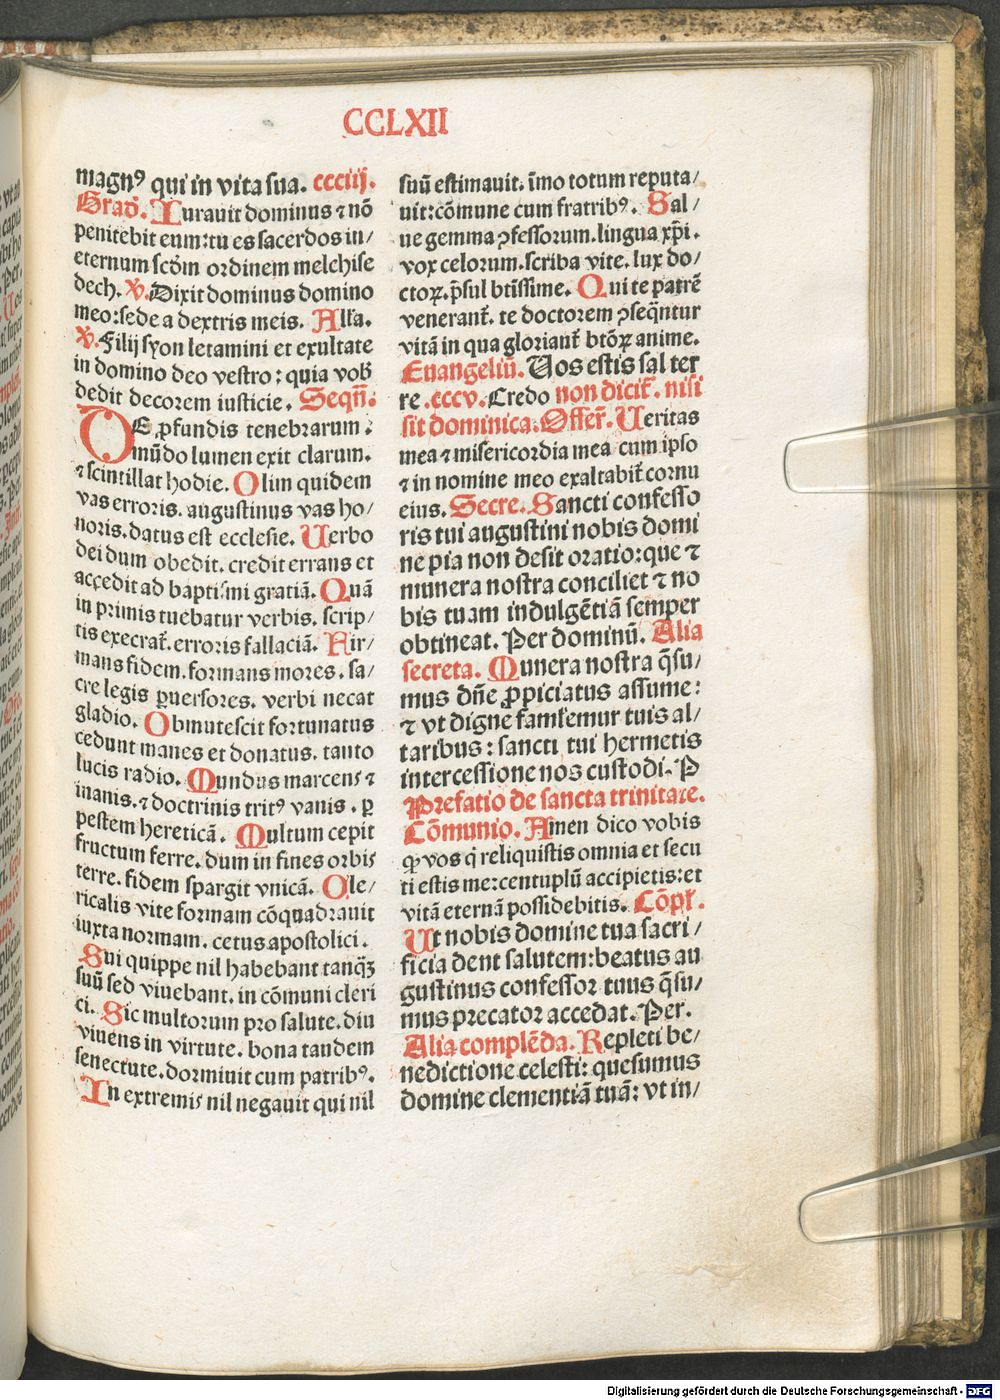 CCLXII
magnꝰ qui in vita sua. ccciij.
Grad̄. Iurauit dominus ⁊ nō
penitebit eum: tu es sacerdos in/
eternum scd̄m ordinem melchise
dech. ℣. Dixit dominus domino
meo: sede a dextris meis. Alľa.
℣. Filij syon letamini et exultate
in domino deo vestro: quia vob̄
dedit decorem iusticie. Seqn̄.
DE ꝓfundis tenebrarum.
mūdo lumen exit clarum.
⁊ scintillat hodie. Olim quidem
vas erroris. augustinus vas ho/
noris. datus est ecclesie. Uerbo
dei dum obedit. credit errans et
accedit ad baptismi gratiā. Quā
in primis tuebatur verbis. scrip/
tis execrat̄. erroris fallaciā. Fir/
mans fidem. formans mores. sa/
cre legis ꝑuersores. verbi necat
gladio. Obmutescit fortunatus
cedunt manes et donatus. tanto
lucis radio. Mundus marcens ⁊
inanis. ⁊ doctrinis tritꝰ vanis. ꝑ
pestem hereticā. Multum cepit
fructum ferre. dum in fines orbis
terre. fidem spargit vnicā. Cle/
ricalis vite formam cōquadrauit
iuxta normam. cetus apostolici.
Sui quippe nil habebant tanqꝫ
suū sed viuebant. in cōmuni cleri
ci. Sic multorum pro salute. diu
viuens in virtute. bona tandem
senectute. dormiuit cum patribꝰ.
In extremis nil negauit qui nil
suū estimauit. īmo totum reputa/
uit: cōmune cum fratribꝰ. Sal/
ue gemma ꝯfessorum. lingua xp̄i.
vox celorum. scriba vite. lux do/
ctoꝝ. p̄sul btīssime. Qui te patrē
venerant̄. te doctorem ꝯseq̄ntur
vitā in qua gloriant̄ btōꝝ anime.
Euangeliū. Uos estis sal ter
re. cccv. Credo non dicit̄. nisi
sit dominica. Offer̄. Ueritas
mea ⁊ misericordia mea cum ipso
⁊ in nomine meo exaltabit̄ cornu
eius. Secre. Sancti confesso
ris tui augustini nobis domi
ne pia non desit oratio: que ⁊
munera nostra conciliet ⁊ no
bis tuam indulgētiā semper
obtineat. Per dominū. Alia
secreta. Munera nostra q̄su/
mus dn̄e ꝓpiciatus assume:
⁊ vt digne famľemur tuis al/
taribus: sancti tui hermetis
intercessione nos custodi. P
Prefatio de sancta trinitate.
Cōmunio. Amen dico vobis
ꝙ vos q̇ reliquistis omnia et secu
ti estis me: centuplū accipietis: et
vitā eternā possidebitis. Cōpľ.
Ut nobis domine tua sacri/
ficia dent salutem: beatus au
gustinus confessor tuus q̄su/
mus precator accedat. Per.
Alia complēda. Repleti be/
nedictione celesti: quesumus
domine clementiā tuā: vt in/
Digitalisierung gefördert durch die Deutsche Forschungsgemeinschaft - DFG